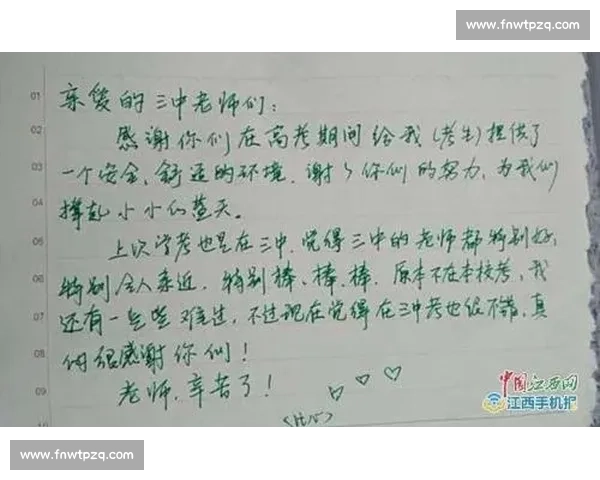 www.fnwtpzq.com
01
亲爱的三中老师们:
02
感谢你们在高考期间给我(考生)提供了
03
一个安全、舒适的环境.谢谢你们的努力,为我们
04
撑起小小的蓝天。
05
上次学考也是在三中.觉得三中的老师都特别好、
06
特别令人亲近,特别棒、棒、棒.原本不在本校考,我
07
还有一些些难过,不过现在觉得在三中考也很不错,真
08
的很感谢你们!
09
老师,辛苦了!
(比心)
中国江西网
江西手机报
www.fnwtpzq.com